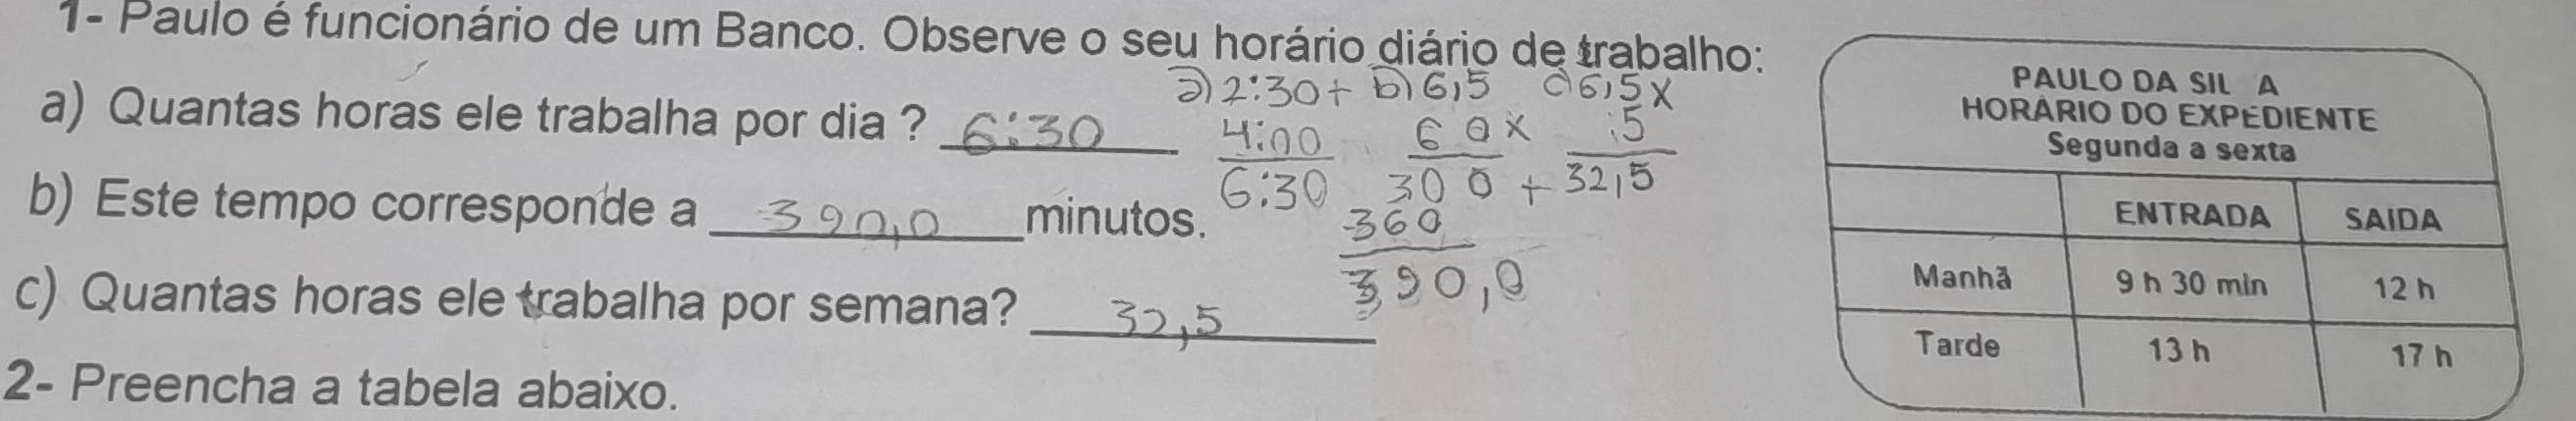 1- Paulo é funcionário de um Banco. Observe o seu horário diário de trabalho:
a) Quantas horas ele trabalha por dia ? 6:30
b) Este tempo corresponde a 390,0 minutos.
c) Quantas horas ele trabalha por semana? 32,5
2- Preencha a tabela abaixo.
a) 2:30+
4:00
6:30
b) 6,5
60 x
300 +
360
390,0
c) 6,5 x
5
32,5
PAULO DA SIL A
HORÁRIO DO EXPEDIENTE
Segunda a sexta
ENTRADA SAIDA
Manhã 9 h 30 min 12 h
Tarde 13 h 17 h